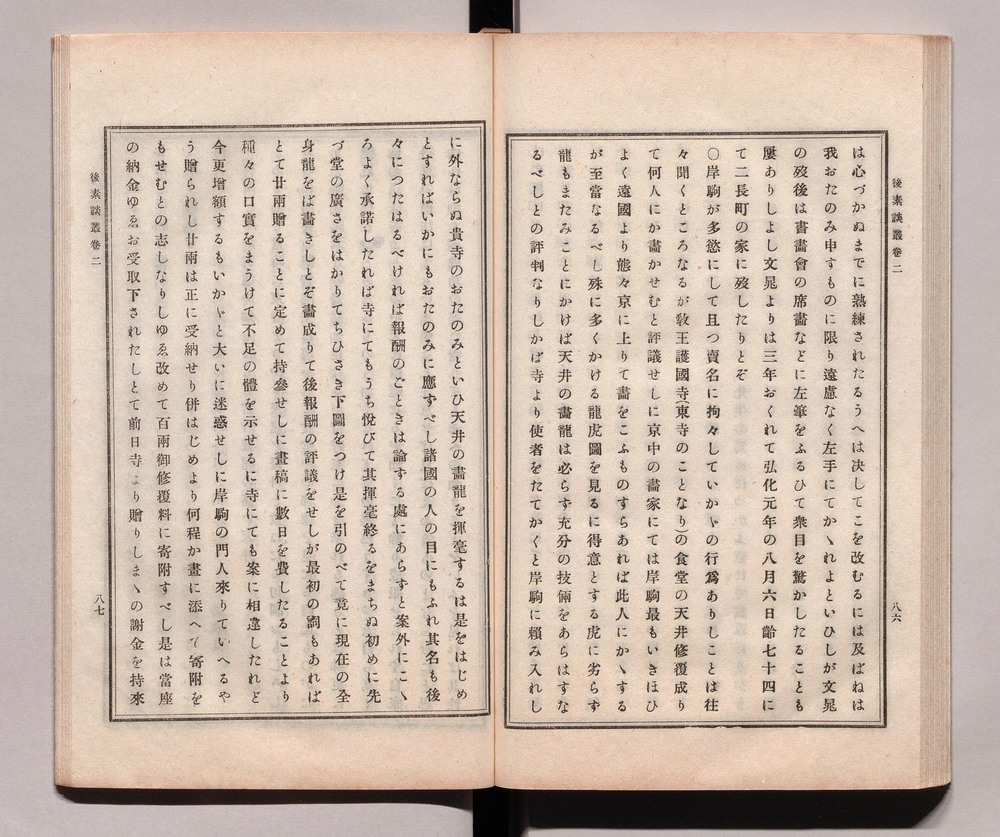 後素談叢卷二
八六
は心づかぬまでに熟練されたるうへは決してこを改むるには及ばねは
我おたのみ申すものに限り遠慮なく左手にてかゝれよといひしが文晁
の歿後は書畫會の席畫などに左筆をふるひて衆目を驚かしたることも
屢ありしよし文晁よりは三年おくれて弘化元年の八月六日齡七十四に
て二長町の家に歿したりとぞ
〇岸駒が多慾にして且つ賣名に拘々していかゞの行爲ありしことは往
々聞くところなるが敎王護國寺(東寺のことなり)の食堂の天井修覆成り
て何人にか畫かせむと評議せしに京中の畫家にては岸駒最もいきほひ
よく遠國より態々京に上りて畫をこふものすらあれば此人にかゝする
が至當なるべし殊に多くかける龍虎圖を見るに得意とする虎に劣らず
龍もまたみことにかけば天井の畫龍は必らす充分の技倆をあらはすな
るべしとの評判なりしかば寺より使者をたてかくと岸駒に賴み入れし
に外ならぬ貴寺のおたのみといひ天井の畫龍を揮毫するは是をはじめ
とすればいかにもおたのみに應すべし諸國の人の目にもふれ其名も後
々につたはるべければ報酬のごときは論する處にあらすと案外にこゝ
ろよく承諾したれば寺にてもうち悅びて其揮毫終るをまちぬ初めに先
づ堂の廣さをはかりてちひさき下圖をつけ是を引のべて竟に現在の全
身龍をば畫きしとぞ畫成りて後報酬の評議をせしが最初の詞もあれば
とて廿兩贈ることに定めて持參せしに畫稿に數日を費したることより
種々の口實をまうけて不足の體を示せるに寺にても案に相違したれど
今更增額するもいかゞと大いに迷惑せしに岸駒の門人來りていへるや
う贈られし廿兩は正に受納せり併はじめより何程か畫に添へて寄附を
もせむとの志しなりしゆゑ改めて百兩御修覆料に寄附すべし是は當座
の納金ゆゑお受取下されたしとて前日寺より贈りしまゝの謝金を持來
後素談叢卷二
八七